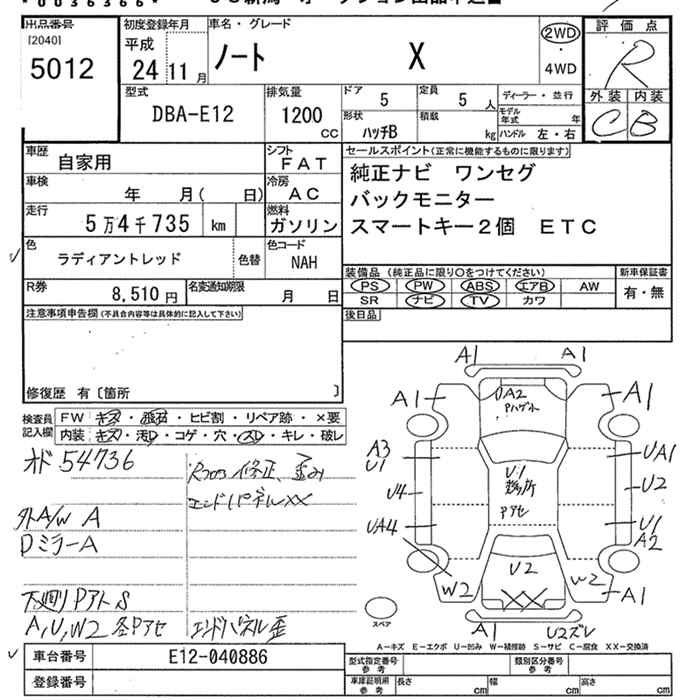 * 0036366 *
出品番号
[2040]
5012
初度登録年月
平成
24 11月
車名・グレード
ノート X
2WD
・
4WD
評価点
R
外装 内装
C B
型式
DBA-E12
排気量
1200
CC
ドア
5
定員
5 人
ディーラー・並行
モデル年式 年
形状
ハッチB
積載
kg
ハンドル 左・右
車歴
自家用
シフト
FAT
車検
年 月( 日)
冷房
AC
走行
5万4千735 km
燃料
ガソリン
セールスポイント(正常に機能するものに限ります)
純正ナビ ワンセグ
バックモニター
スマートキー2個 ETC
色
ラディアントレッド
色替
色コード
NAH
R券
8,510円
名変通知期限
月 日
装備品(純正品に限り○をつけてください)
PS PW ABS エアB AW
SR ナビ TV カワ
新車保証書
有・無
後日品
注意事項申告欄(不具合内容等は具体的に記入して下さい)
修復歴 有〔箇所 〕
検査員記入欄
FW キズ・飛石・ヒビ割・リペア跡・×要
内装 キズ・汚レ・コゲ・穴・スレ・キレ・破レ
オド 54736
修正、歪み
エンドパネルXX
外A/W A
DミラーA
下廻りPアトS
A,U,W2 各Pアセ
エンドパネル歪
A1 A1
A1 A2 A1
A3
U1
U1
UA1
U4
Pアセ
U2
UA4
U1
A2
U2
W2 W2 A1
XX
A1
U2ズレ
スペア
A−キズ E−エクボ U−凹み W−補修跡 S−サビ C−腐食 XX−交換済
車台番号
E12-040886
登録番号
型式指定番号
参考
類別区分番号
参考
車庫証明用
参考
長さ cm
幅 cm
高さ cm